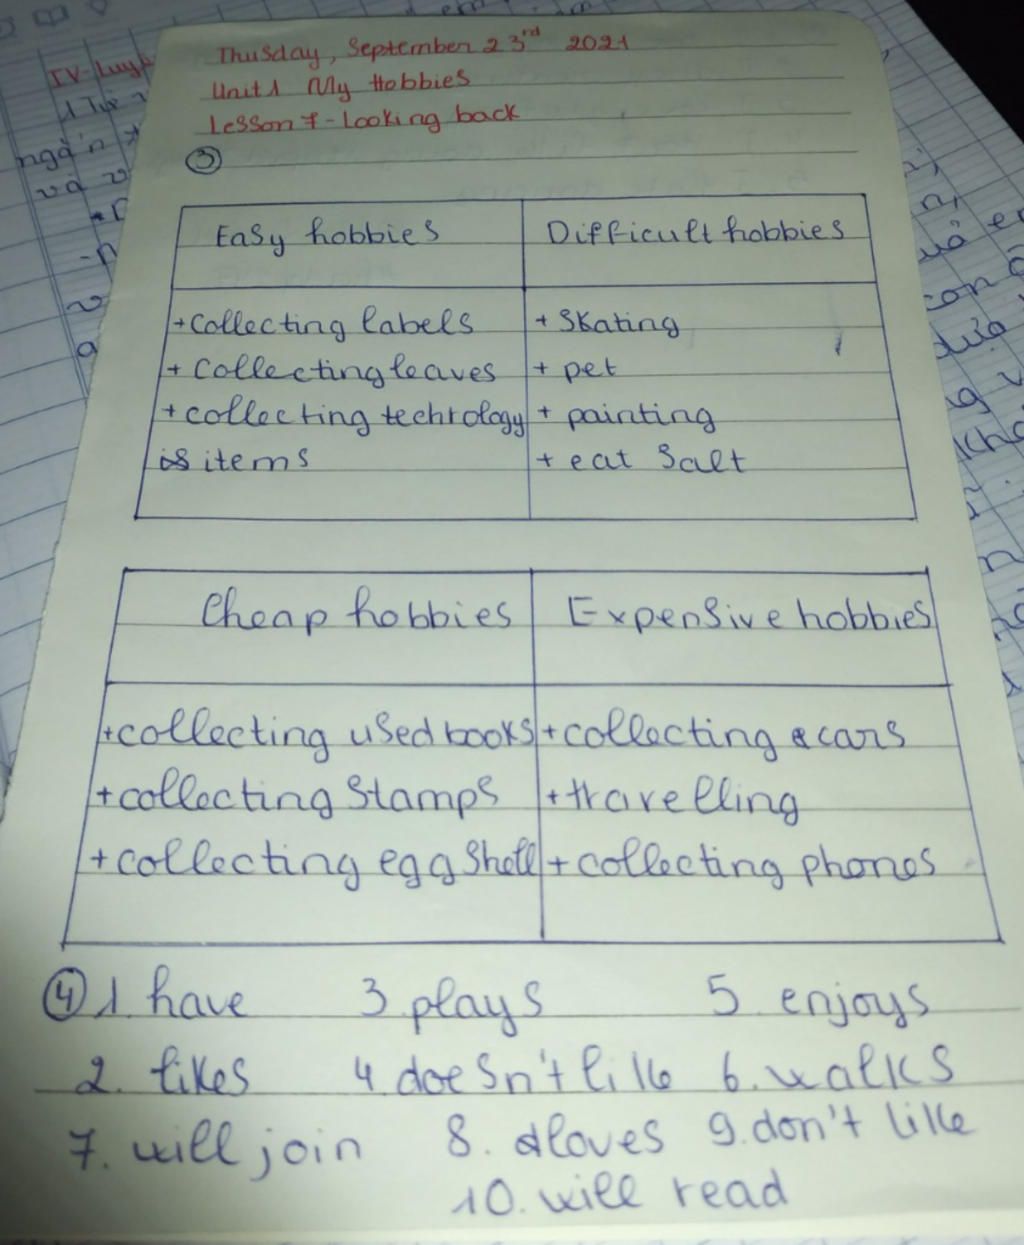 Thusday, September 23rd 2021
Unit 1 My Hobbies
Lesson 7 - Looking back
③
Easy hobbies | Difficult hobbies
+ Collecting labels | + Skating
+ Collecting leaves | + pet
+ collecting techrology | + painting
items | + eat Salt
Cheap hobbies | Expensive hobbies
+ collecting used books | + collecting cars
+ collecting Stamps | + travelling
+ collecting egg Shell | + collecting phones
④ 1. have 3. plays 5. enjoys
2. likes 4. doesn't like 6. walks
7. will join 8. loves 9. don't like
10. will read
IV- Luyệ
ngắn
và v
con